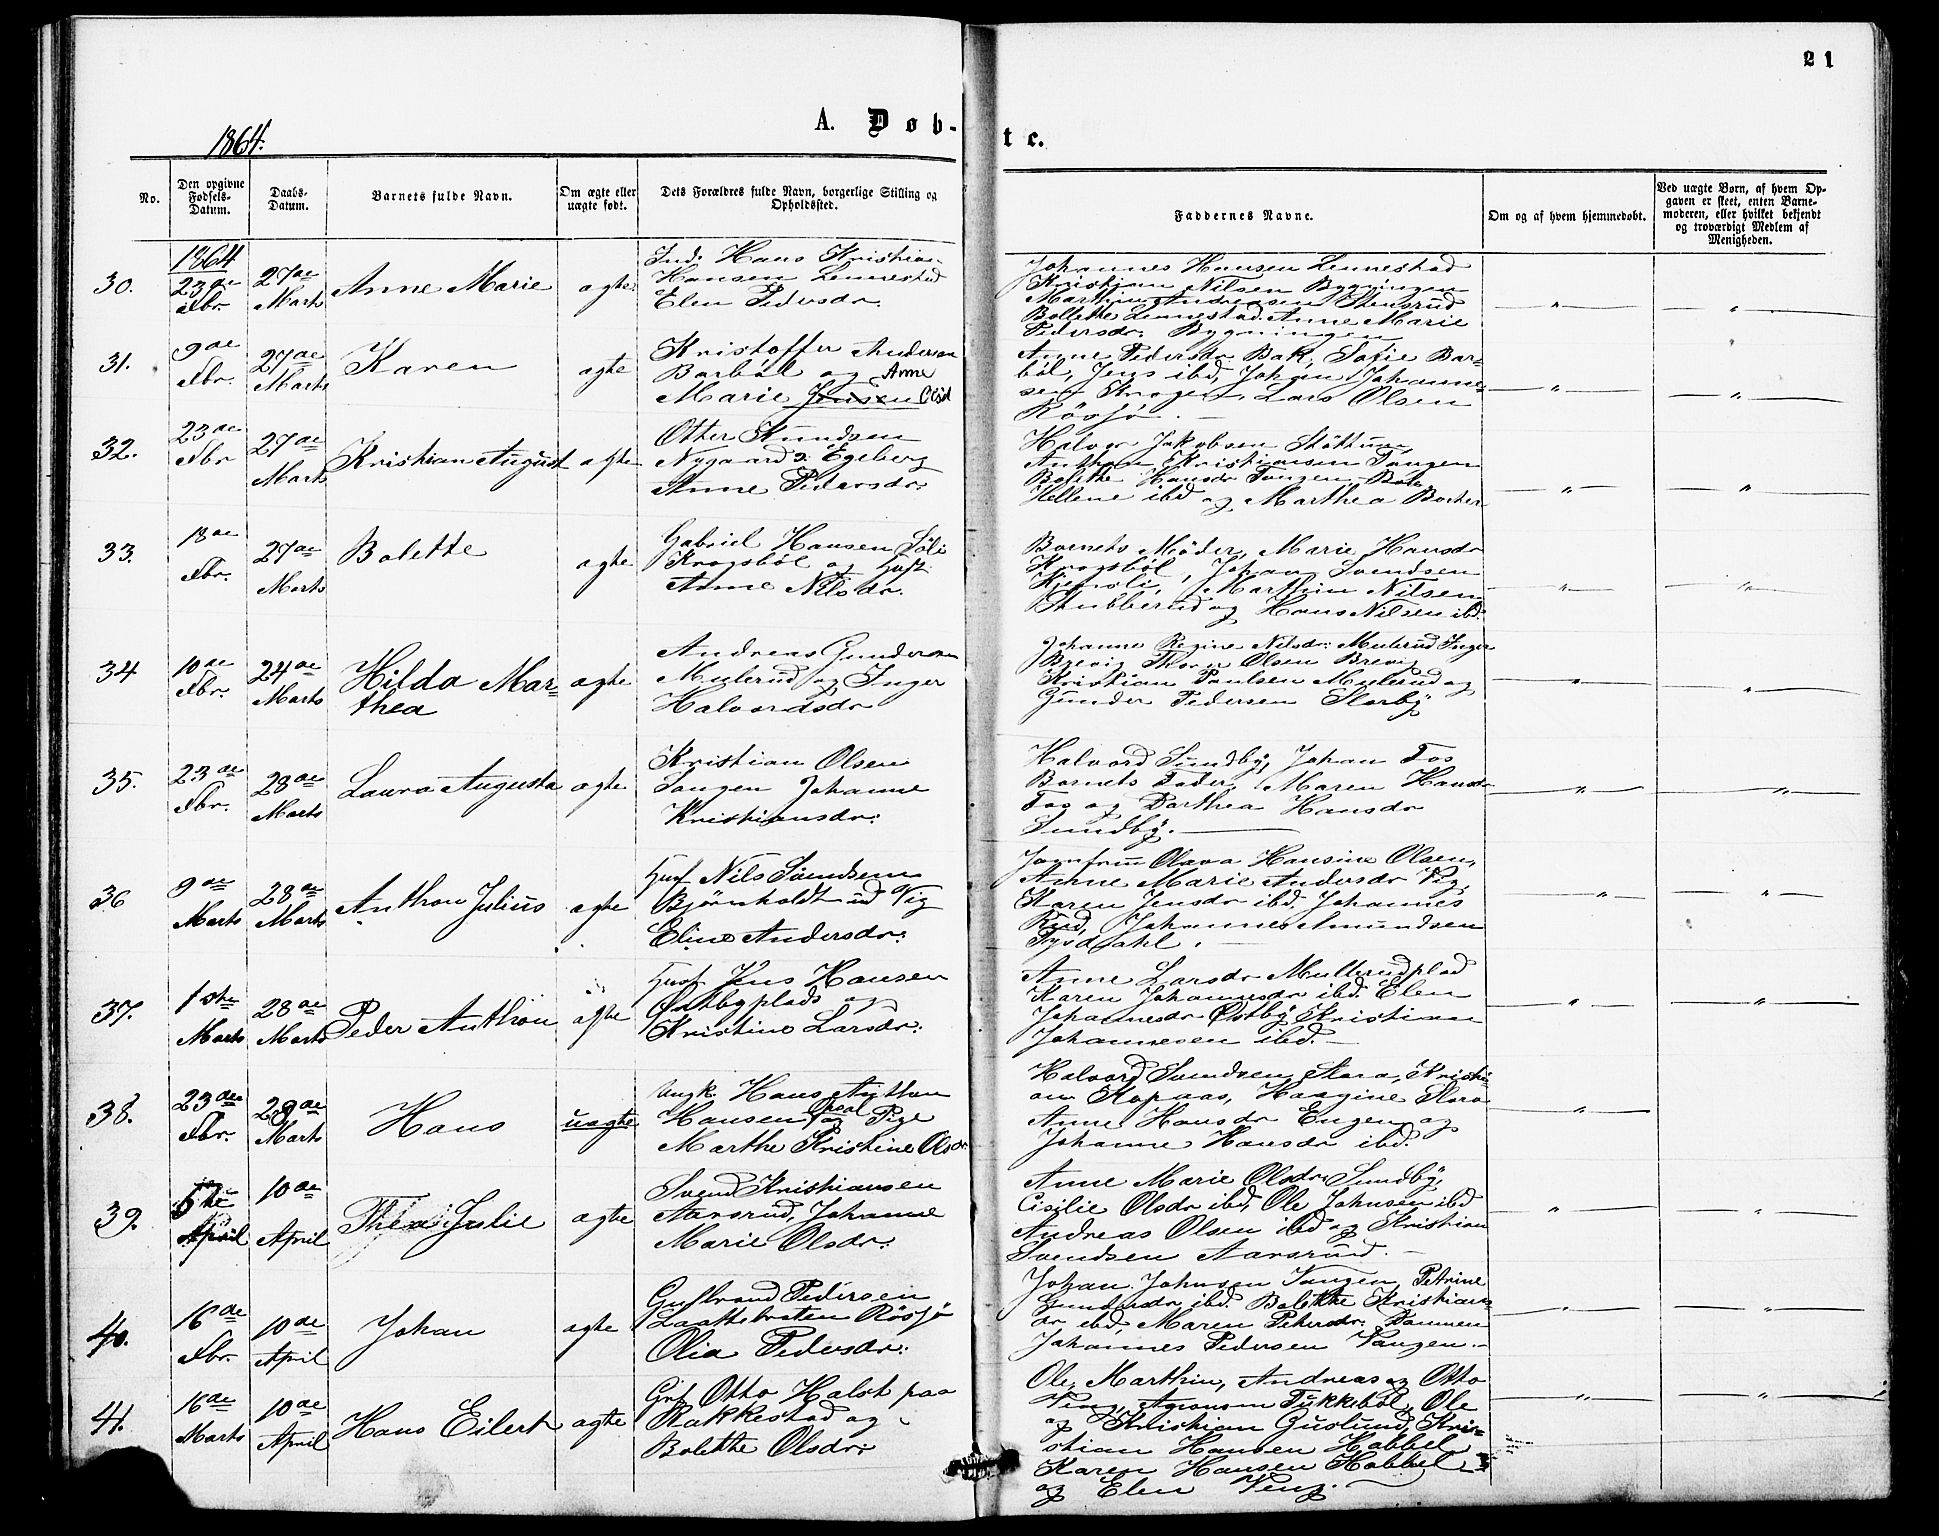 21
1864.
A. Døb-
te.
No.
Den opgivne
Fødsels-
Datum.
Daabs-
Datum.
Barnets fulde Navn.
Om ægte eller
uægte født.
Dets Forældres fulde Navn, borgerlige Stilling og
Opholdssted.
Faddernes Navne.
Om og af hvem hjemmedøbt.
Ved uægte Børn, af hvem Op-
gaven er skeet, enten Barne-
moderen, eller hvilket bekjendt
og troværdigt Medlem af
Menigheden.
30.
1864
23de
Fbr.
27de
Marts
Anne Marie
agte
Ind. Hans Kristian
Hansen Lennestad
Elen Pedersdr.
Johannes Hansen Lennestad
Kristian Nilsen Bygningen
Marthin Andreasen Stensrud
Bolette Lennestad. Anne Marie
Pedersdr. Bygningen
31.
9de
Fbr.
27de
Marts
Karen
agte
Kristoffer Anderson
Barböl og Anne
Marie Jensen Olsd
Anne Pedersdr Bak, Sofie Bar-
böl, Jens ibd, Johan Johanne-
sen Krogen, Lars Olsen
Rösjö. —
32.
23de
Fbr
27de
Marts
Kristian August
agte
Otter Knudsen
Nygaard Egeberg
Anne Pedersdr.
Halvor Jakobsen Støttum,
Anthon Kristiansen Tangen
Bolethe Hansdr Tangen,
Hellene ibd og Marthea
33.
18de
Fbr.
27de
Marts
Bolette
agte
Gabriel Hansen Söli
Krogsböl og Hust.
Anne Nilsdr.
Barnets Moder, Marie Hansdr
Krogsböl, Johan Svendsen
Kjensli, Marthin Nilsen
Stubberud og Hans Nilsen ibd.
34
10de
Fbr.
24de
Marts
Hilda Mar-
thea
agte
Andreas Gundersen
Mulerud og Inger
Halvordsdr
Johanne Regine Nilsdr. Mulerud Inger
Brevig Thor Olsen Brevig
Kristian Paulsen Mulerud og
Gunder Pedersen Slorby
35.
23de
Fbr.
28de
Marts
Laura Augusta
agte
Kristian Olsen
Tangen Johanne
Kristiansdr.
Halvord Sundby, Johan Fos
Barnets Fader, Maren Hansdr
Fos og Dorthea Hansdr
Sundby. —
36
9de
Marts
28de
Marts
Anthon Julius
agte
Husf Nils Svendsen
Björnholdt ud Vig
Eline Andersdr.
Jomfrue Olava Hansine Olsen,
Anne Marie Andersdr Vig,
Karen Jensdr ibd, Johannes
Rud, Johannes Amundsen
Tysdahl. —
37.
1ste
Marts
28de
Marts
Peder Anthon
agte
Husf Jens Hansen
Östbyplads og
Kristine Larsdr.
Anne Larsdr Mullerudplad
Karen Johannesdr ibd. Elen
Johannesdr Östby Kristian
Johannesen ibd. —
38.
23de
Fbr.
28de
Marts
Hans
uagte
Ungk. Hans Anthon
Hansen Opsal og Pige
Marthe Kristine Olsdr.
Halvord Svendsen Slora, Kristi-
an Kopaas, Hansine Slora
Anne Hansdr Engen og
Johanne Hansdr ibd.
39.
April
10de
April
Thea Julie
agte
Svend Kristiansen
Aarsrud, Johanne
Marie Olsdr.
Anne Marie Olsdr. Sundby,
Cisilie Olsdr ibd, Ole Johnsen ibd
Andreas Olsen ibd og Kristian
Svendsen Aarsrud. —
40.
16de
Fbr.
10de
April
Johan
agte
Gulbrand Pedersen
Laattebraten Rösjö
Olia Pedersdr.
Johan Johnsen Vangen, Petrine
Gundersdr ibd. Bolethe Kristians-
dr ibd, Maren Pettersdr. Dammen
Johannes Pedersen Vangen. —
41.
16de
Marts
10de
April
Hans Eilert
agte
Otto Halst paa
Rakkestad og
Bolethe Olsdr.
Ole, Marthin, Andreas og Otto
Veng, Aronsen Tukkeböl, Ole
og Kristian Guslund, Kris-
stian Hansen Hobbel
Karen Hansen Hobbel
og Elen Veng. —